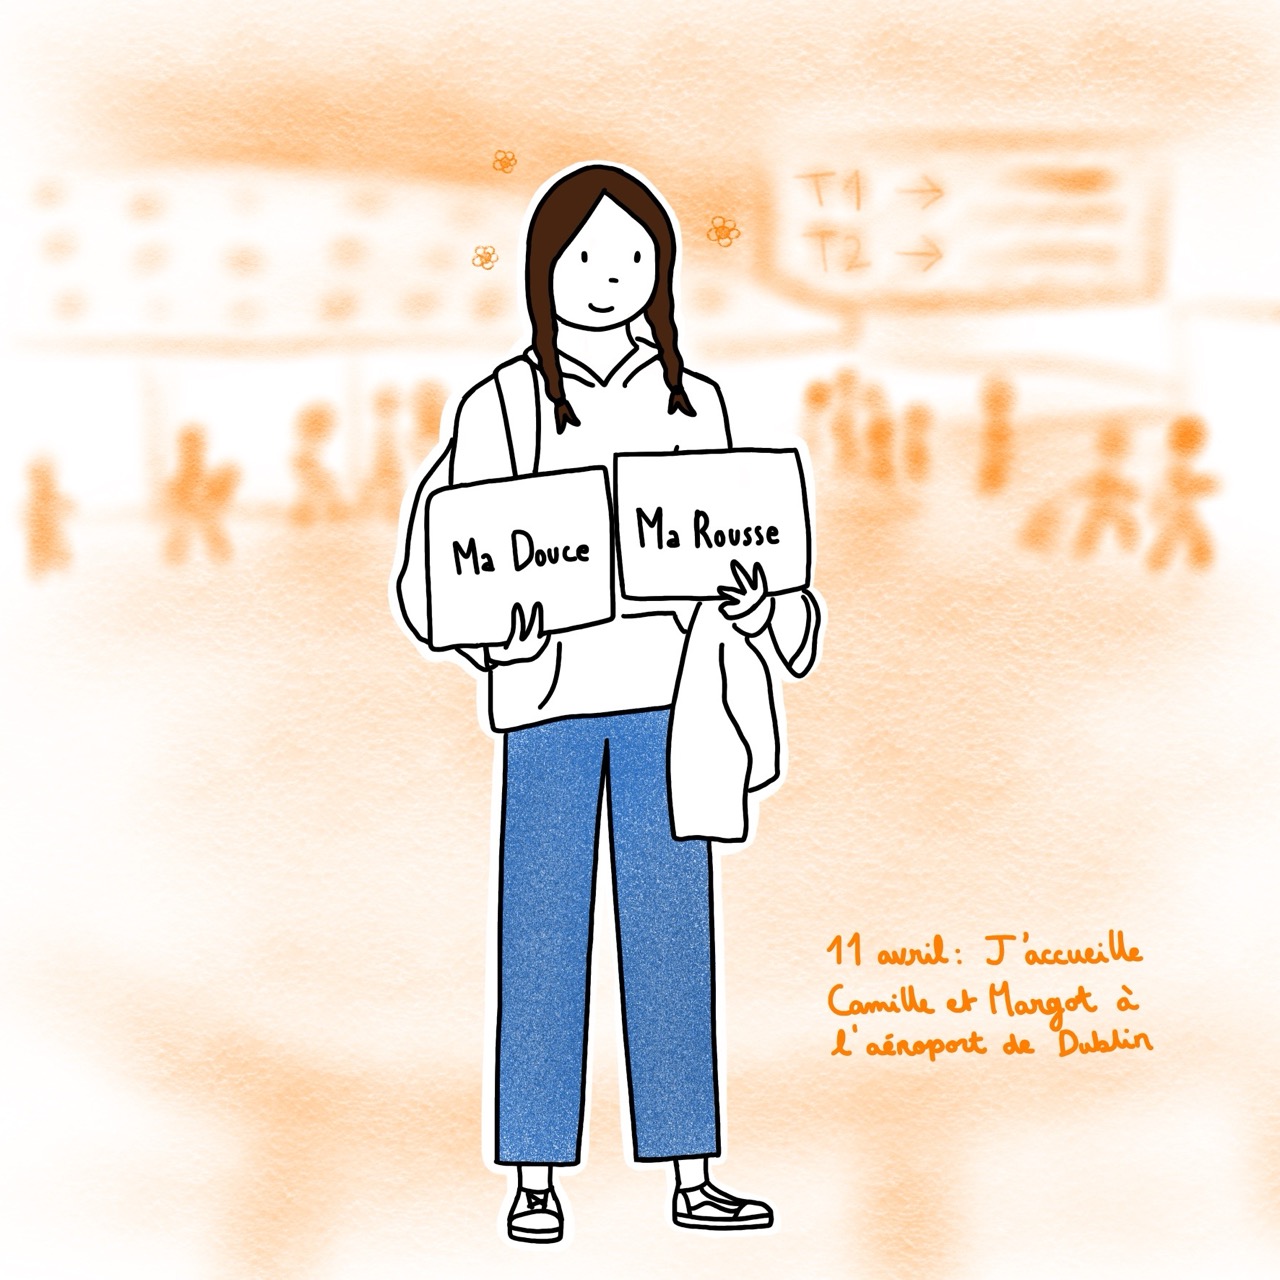 T1 →
T2 →
Ma Douce
Ma Rousse
11 avril : J'accueille
Camille et Margot à
l'aéroport de Dublin